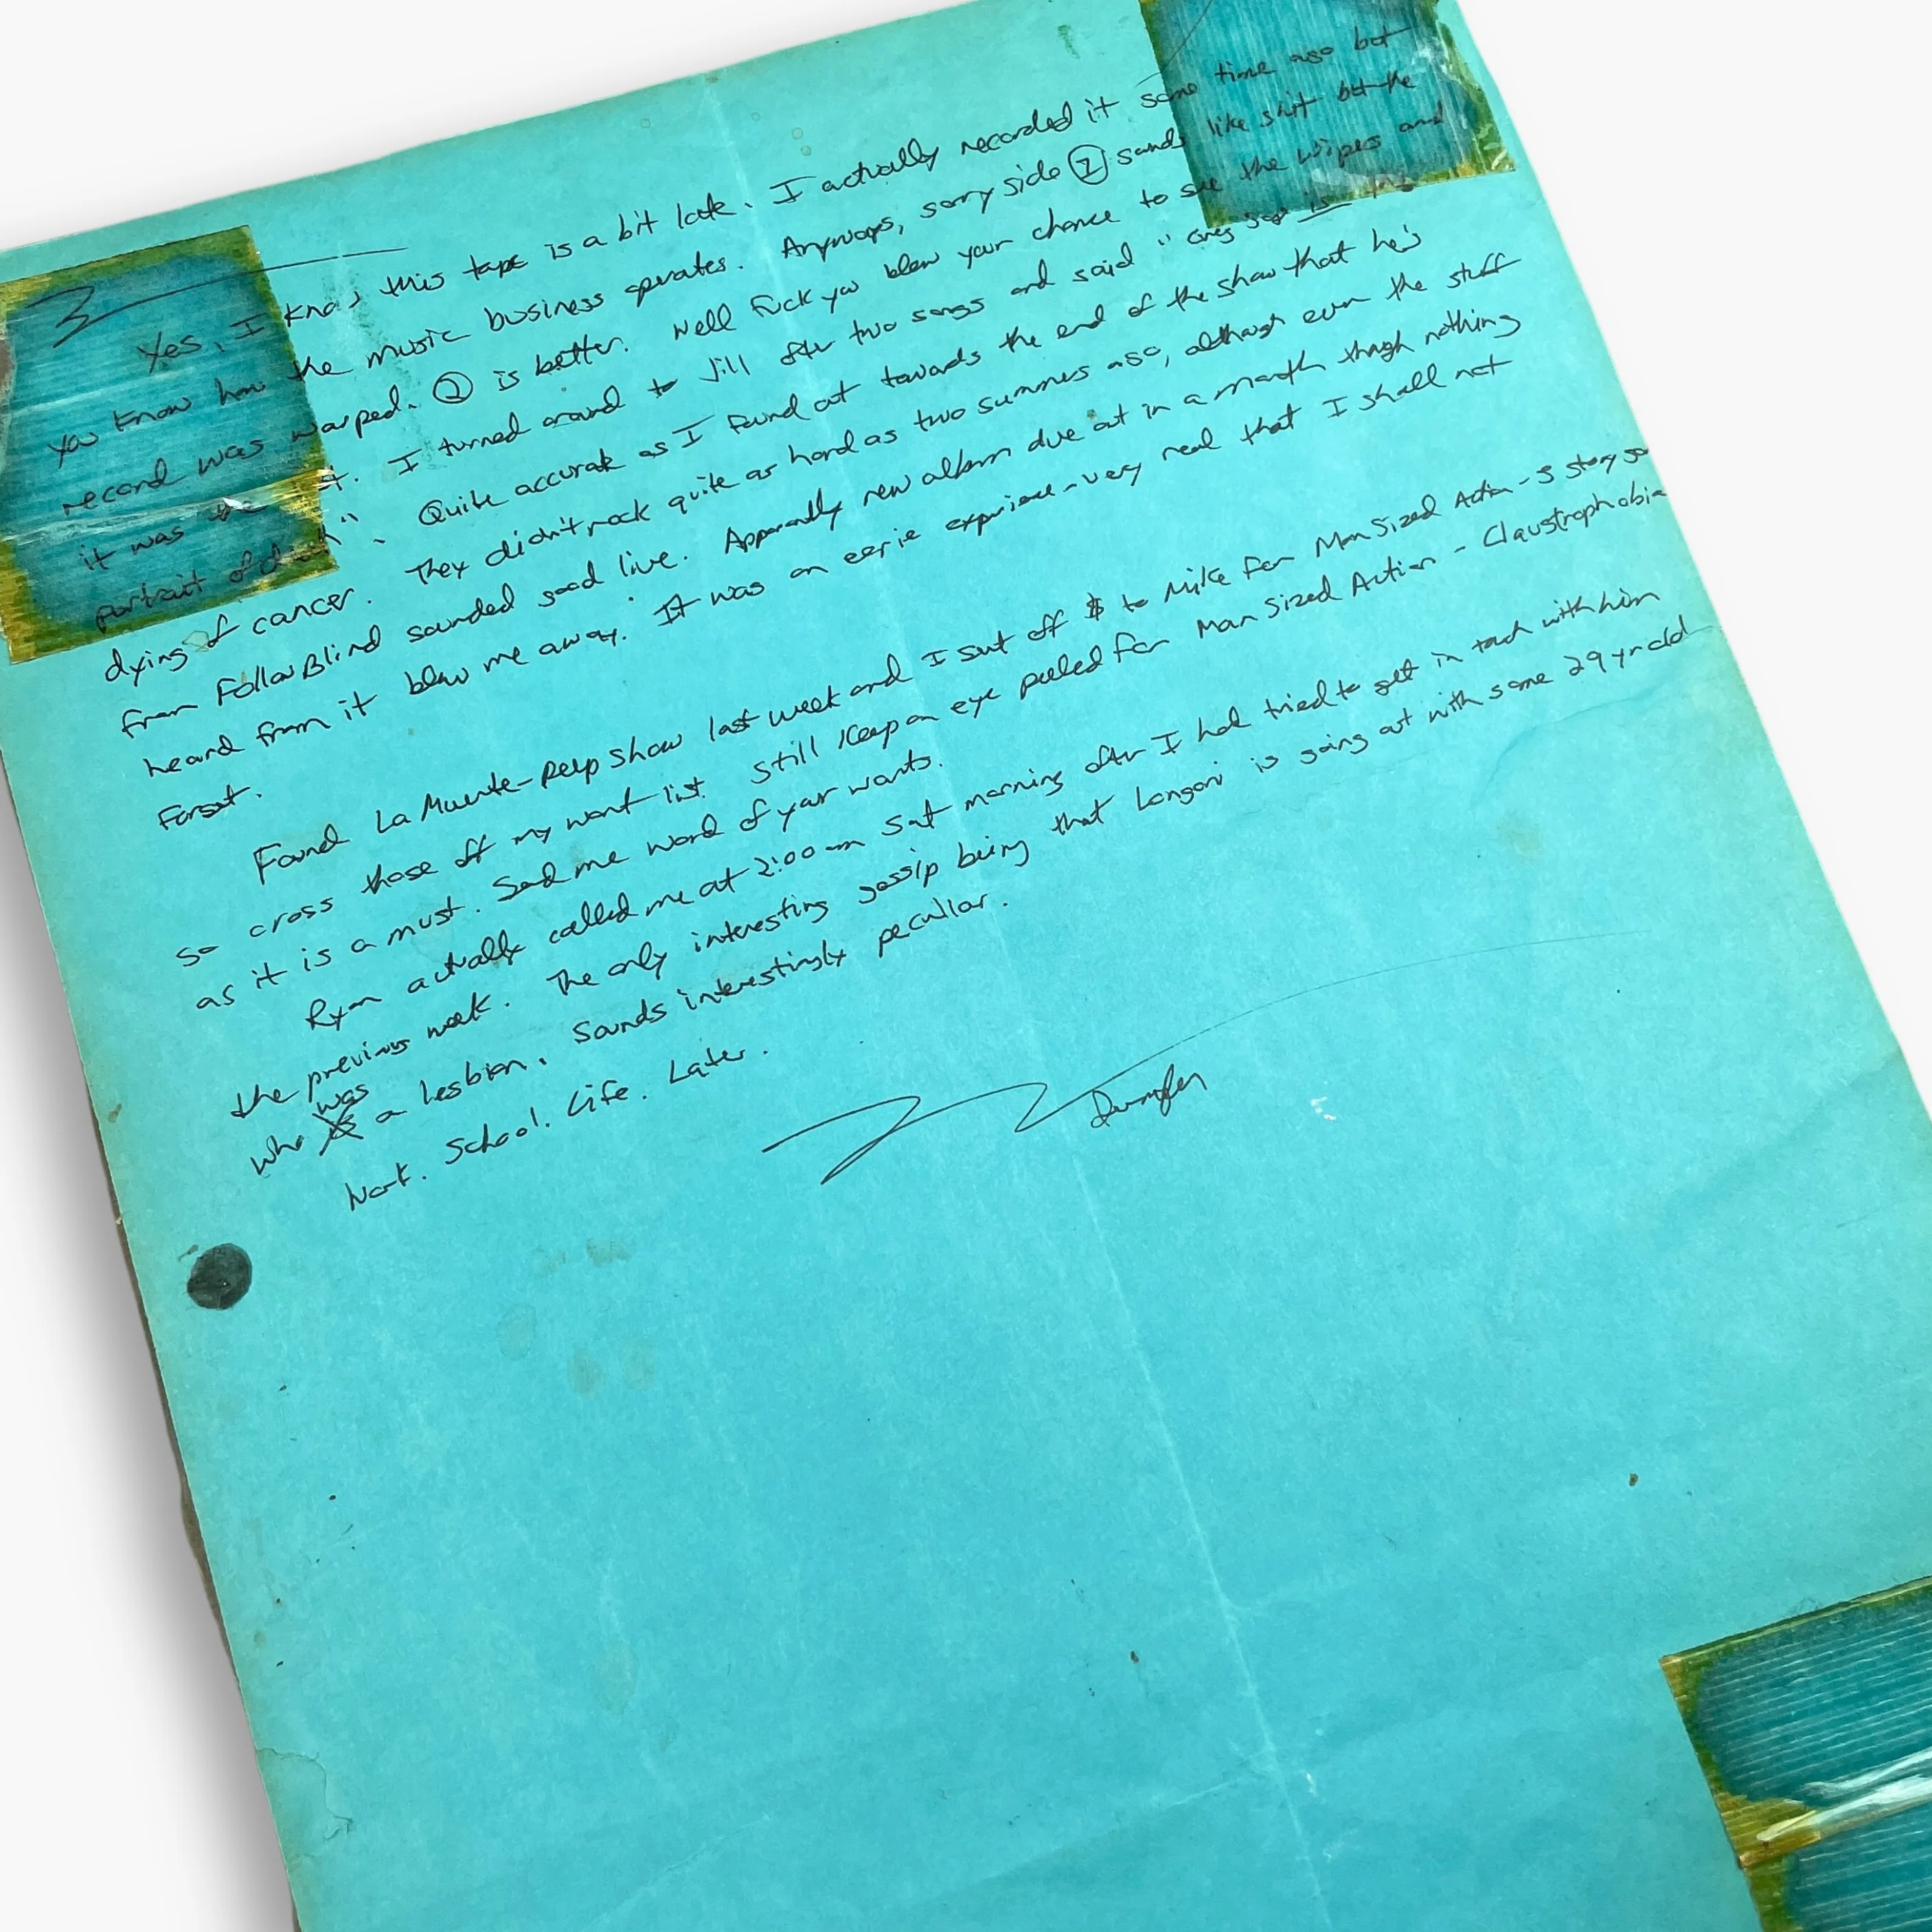 Yes, I know this tape is a bit late. I actually recorded it some time ago but
you know how the music business operates. Anyways, sorry side ① sounds like shit but the
record was warped. ② is better. Well fuck you blew your chance to see the Wipers and
it was I turned around to Jill after two songs and said " Greg Sage is the
portrait of death". Quite accurate as I found out towards the end of the show that he's
dying of cancer. They didn't rock quite as hard as two summers ago, although even the stuff
from Follow Blind sounded good live. Apparently new album due out in a month though nothing
heard from it blew me away. It was an eerie experience - very real that I shall not
forget.
Found La Muerte - Peep Show last week and I sent off $ to Mike for Man Sized Action - 5 story ga
so cross those off my want list. Still keep an eye peeled for Man Sized Action - Claustrophobia
as it is a must. Send me word of your wants.
Ryan actually called me at 2:00 am Sat morning after I had tried to get in touch with him
the previous week. The only interesting gossip being that Longoni is going out with some 29 yr old
who was a lesbian. Sounds interestingly peculiar.
Work. School. Life. Later.